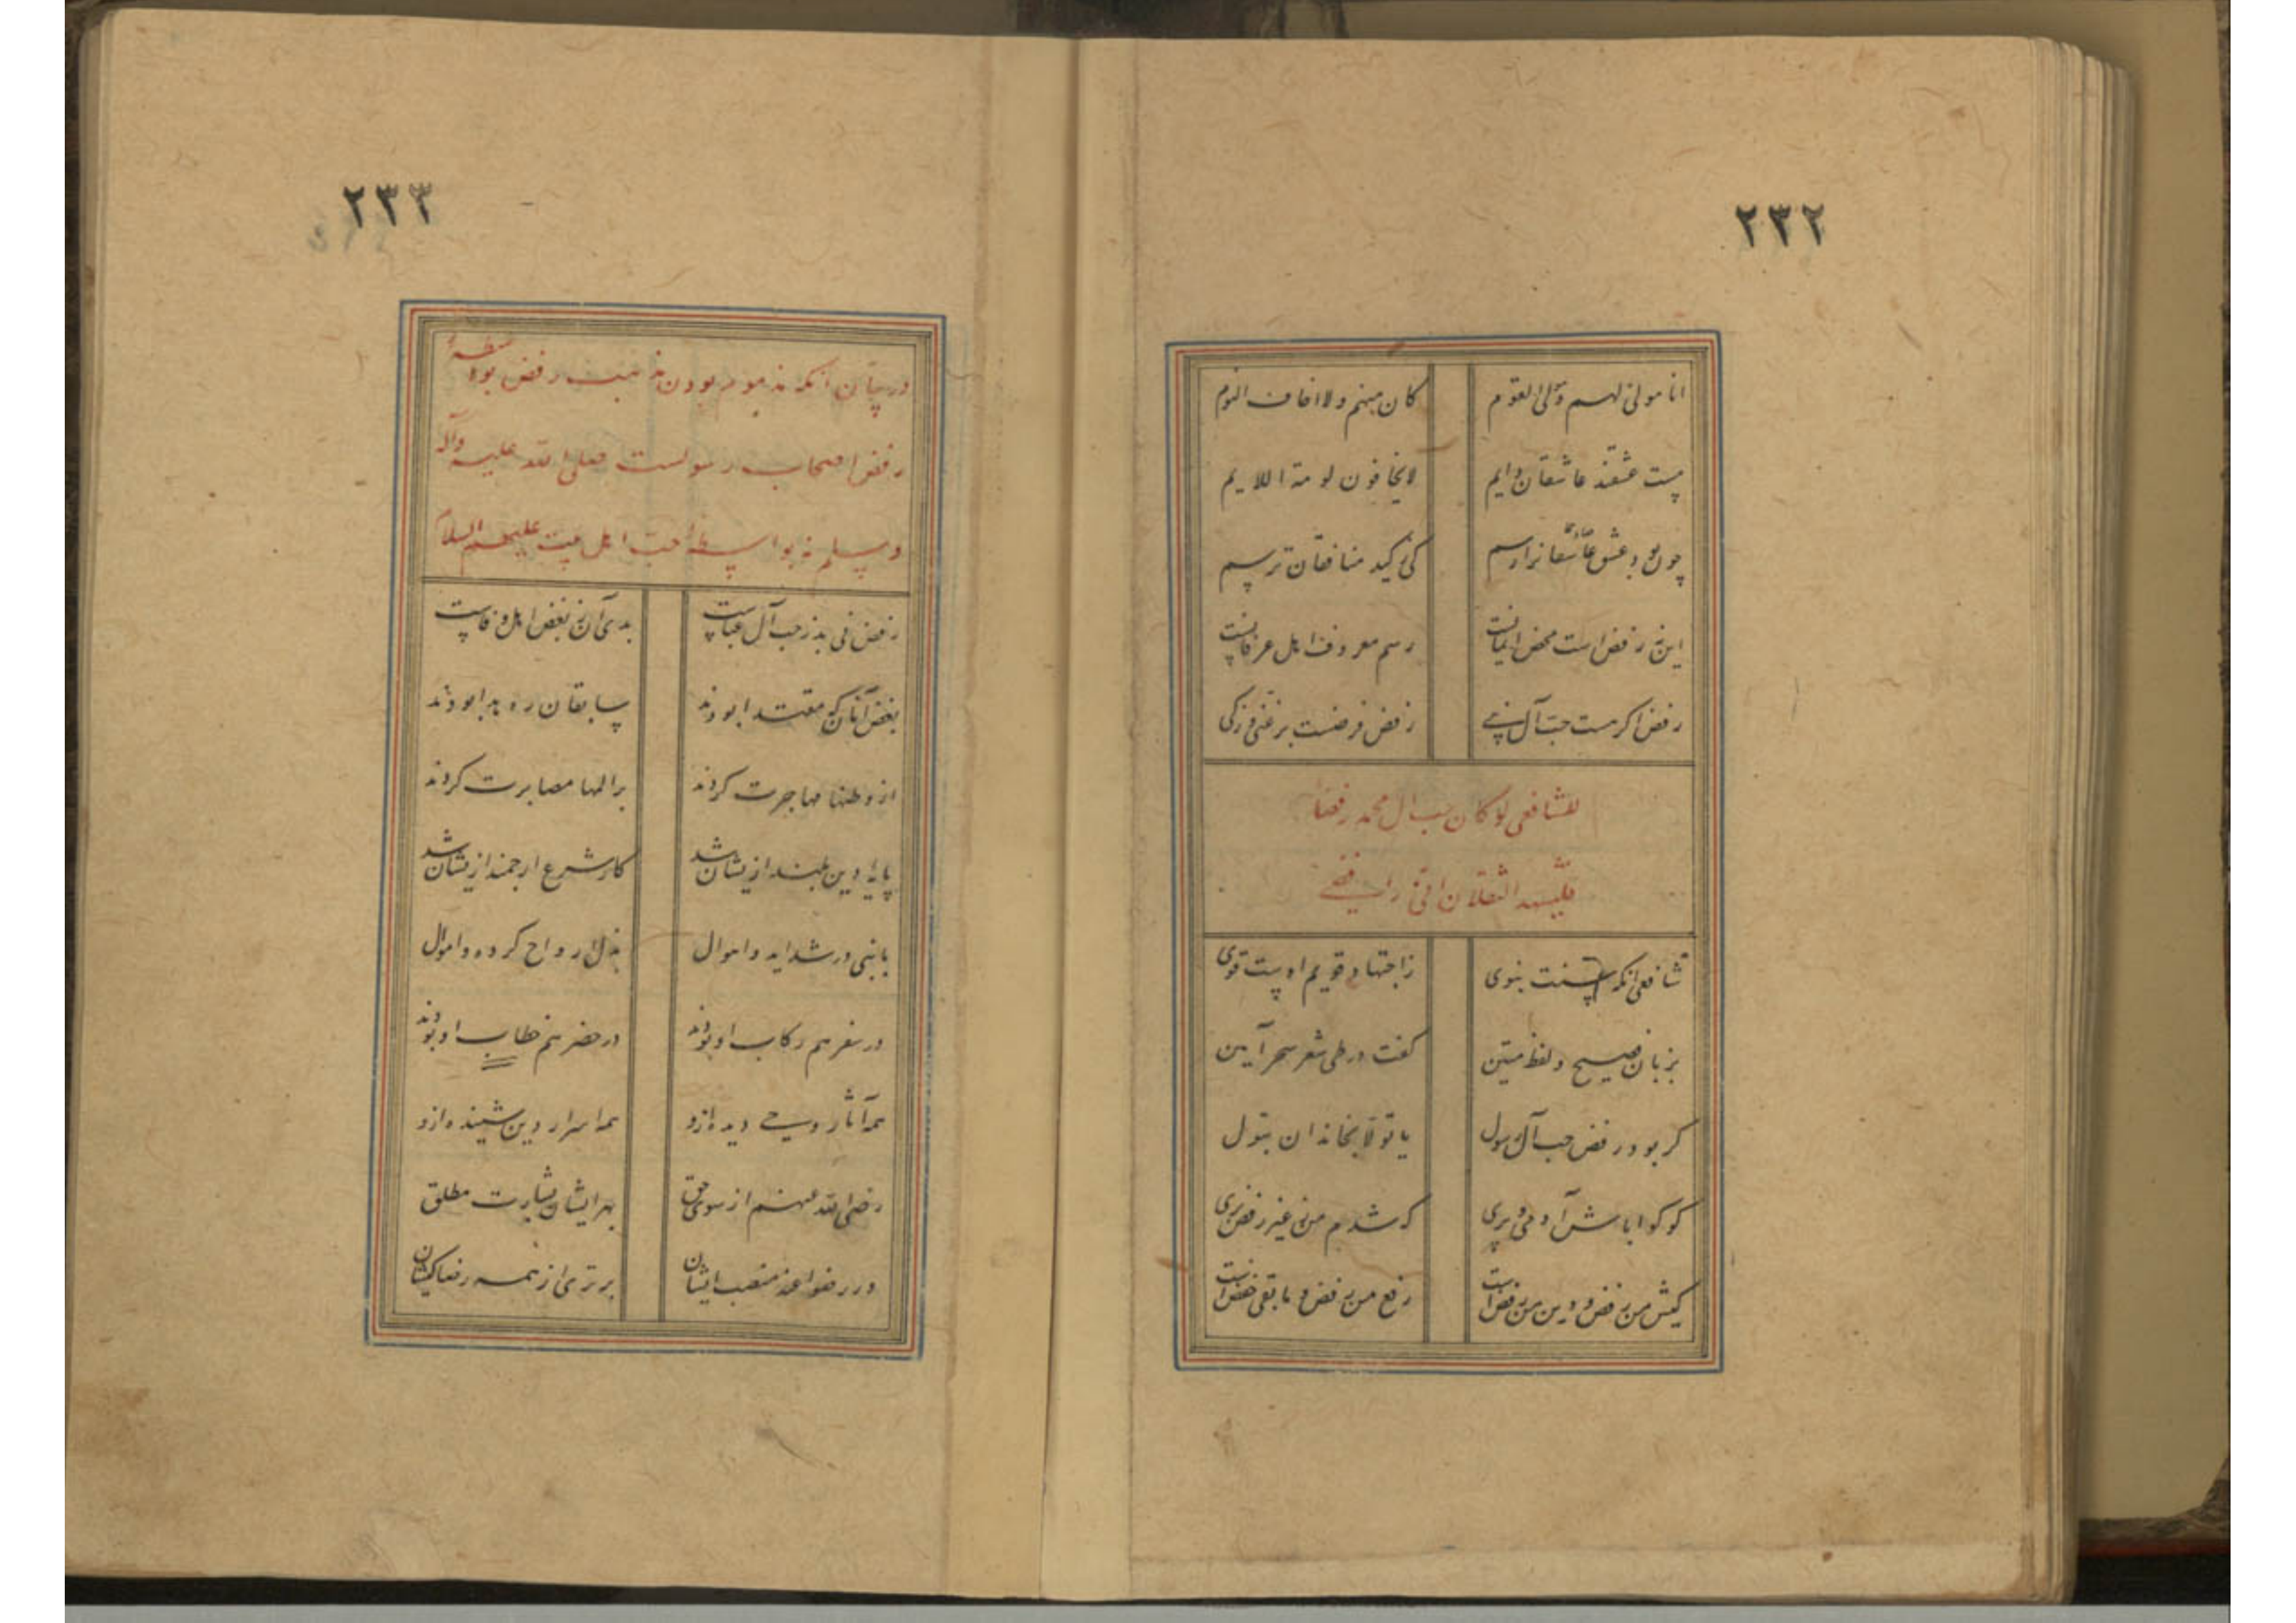 ۲۳۲
انا مولی لهم و مولی القوم کان منهم و لا اخاف اللوم
مست عشقند عاشقان دایم لایخافون لومة اللایم
چون بود عشق عاشقان رسم کی ز کید منافقان ترسم
این نه رفض است محض ایمانست رسم معروف اهل عرفانست
رفض اگر هست حب آل نبی رفض فرضست بر غنی و زکی
للشافعی لو کان حب ال محمد رفضا
فلیشهد الثقلان انی رافضی
شافعی انکه سنت نبوی زاجتهاد قویم اوست قوی
بزبان فصیح و لفظ متین گفت در طی شعر سحر آیین
گر بود رفض حب آل رسول یا تولا بخاندان بتول
گو گوا باش آدمی و پری که شدم من ز غیر رفض بری
کیش من رفض و دین من رفض است رفع من رفض و مابقی خفض است
۲۳۳
در بیان انکه مذموم بودن مذهب رفض بواسطهٔ
رفض اصحاب رسولست صلی الله علیه وآله
وسلم نه بواسطهٔ حب اهل بیت علیهم السلام
رفض نی بد ز حب آل عباست بدی آن ز بغض اهل وفاست
بغض آنان که مقتدا بودند سابقان ره هدا بودند
از وطنها مهاجرت کردند بر المها مصابرت کردند
پایهٔ دین بلند ازیشان شد کار شرع ارجمند ازیشان شد
با نبی در شداید و اهوال بذل ارواح کرده و اموال
در سفر هم رکاب او بودند در حضر هم خطاب او بودند
همه آثار وحی دیده ازو همه اسرار دین شنیده ازو
رضی الله عنهم از سوی حق بهر ایشان بشارت مطلق
ورضوا عنه منصب ایشان برتری از همه رضا کیشان